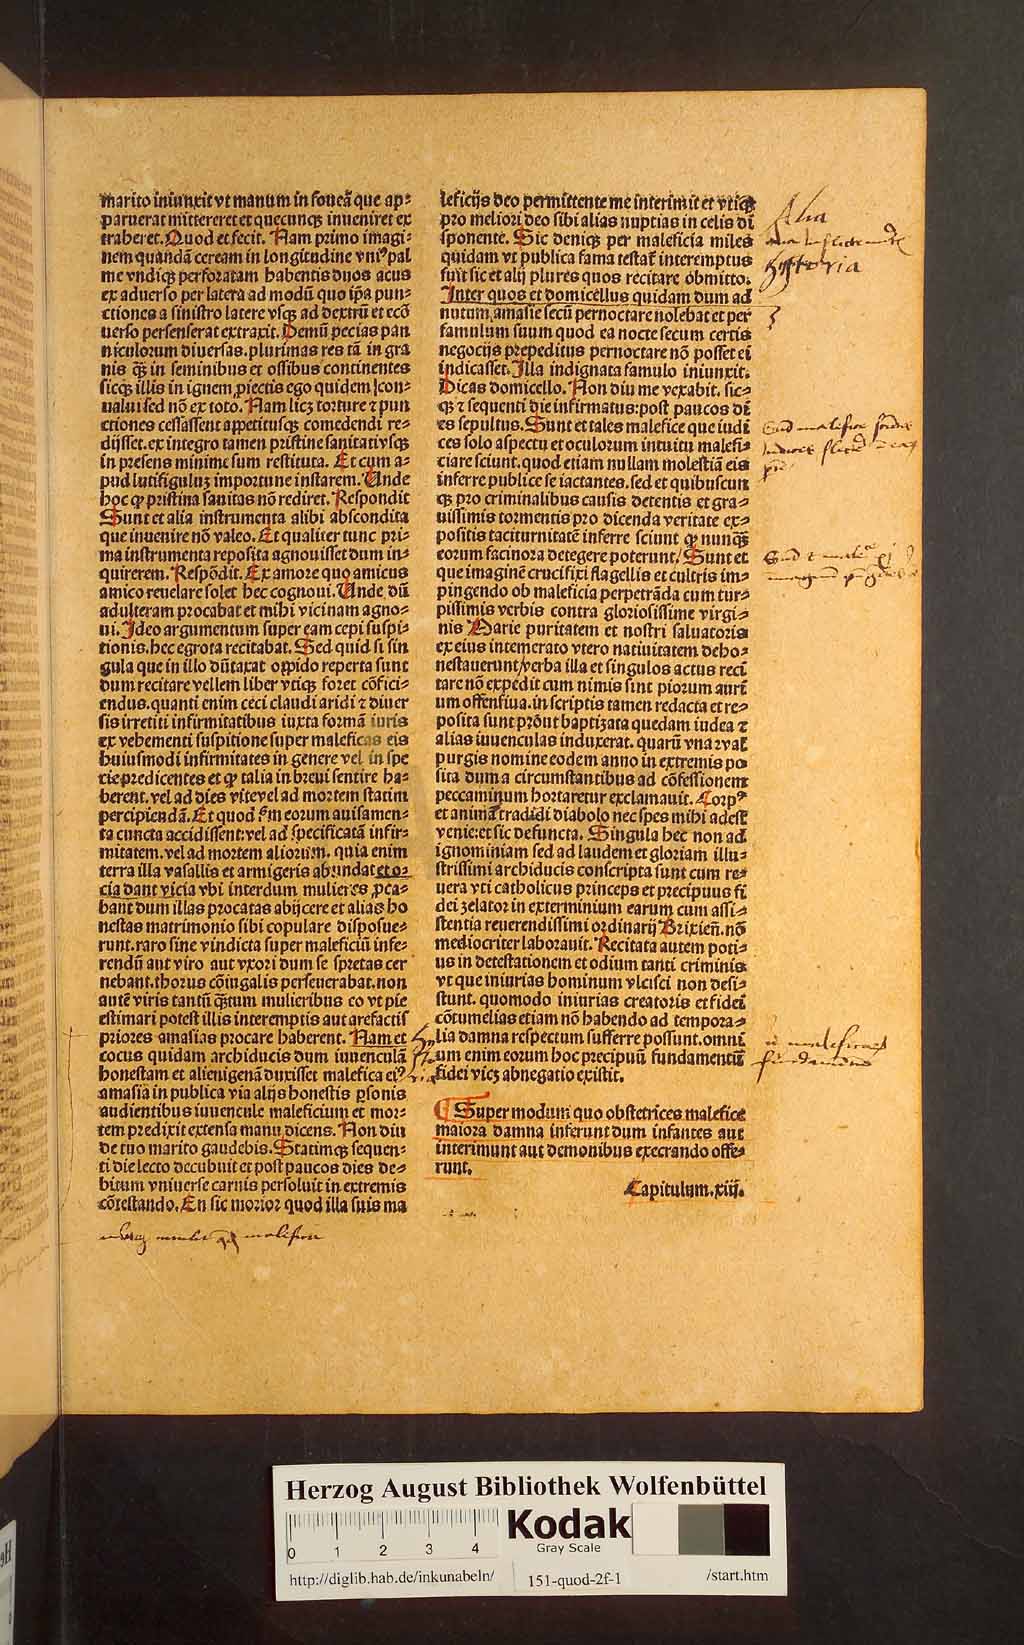 marito iniunxit vt manum in foueā que ap⸗
paruerat mitteret et quecunqꝫ inueniret ex
traheret. Quod et fecit. Nam primo imagi⸗
nem quandā ceream in longitudine vniꝰ pal
me vndiqꝫ perforatam habentis duos acus
ex aduerso per latera ad modū quo ip̄a pun⸗
ctiones a sinistro latere vsqꝫ ad dextrū et ecō
uerso persenserat extraxit. Demū pecias pan
niculorum diuersas. plurimas res tā in gra
nis qꝫ̄ in seminibus et ossibus continentes
sicqꝫ illis in ignem ꝓiectis ego quidem ꝯcon⸗
ualui sed nō ex toto. Nam licꝫ torture ⁊ pun
ctiones cessassent appetitusqꝫ comedendi re⸗
dijsset. ex integro tamen pristine sanitati vsqꝫ
in presens minime sum restituta. Et cum a⸗
pud lutifigulus importune instarem. Unde
hoc ꝙ pristina sanitas nō rediret. Respondit
Sunt et alia instrumenta alibi abscondita
que inuenire nō valeo. Et qualiter tunc pri⸗
ma instrumenta reposita agnouisset dum in⸗
quirerem. Respōdit. Ex amore quo amicus
amico reuelare solet hec cognoui. Unde dū
adulteram procabat et mihi vicinam agno⸗
ui. Ideo argumentum super eam cepi suspi⸗
tionis. hec egrota recitabat. Sed quid si sin
gula que in illo dūtaxat oppido reperta sunt
dum recitare vellem liber vtiqꝫ foret cōfici⸗
endus. quanti enim ceci claudi aridi ⁊ diuer
sis irretiti infirmitatibus iuxta formā iuris
ex vehementi suspitione super maleficas eis
huiusmodi infirmitates in genere vel in spe
cie predicentes et ꝙ talia in breui sentire ha⸗
berent. vel ad dies vite vel ad mortem statim
percipiendā. Et quod sm̄ eorum auisamen⸗
ta cuncta accidissent: vel ad specificatā infir⸗
mitatem. vel ad mortem aliorum. quia enim
terra illa vasallis et armigeris abundat et o⸗
cia dant vicia vbi interdum mulieres ꝓca⸗
bant dum illas procatas abijcere et alias ho
nestas matrimonio sibi copulare disposue⸗
runt. raro sine vindicta super maleficiū infe⸗
rendū aut viro aut vxori dum se spretas cer
nebant. thorus cōiugalis perseuerabat. non
autē viris tantū qꝫ̄tum mulieribus eo vt pie
estimari potest illis interemptis aut arefactis
priores amasias procare haberent. Nam et
cocus quidam archiducis dum iuuenculā
honestam et alienigenā duxisset malefica eiꝰ
amasia in publica via alijs honestis ꝑsonis
audientibus iuuencule maleficium et mor⸗
tem predixit extensa manu dicens. Non diu
de tuo marito gaudebis. Statimqꝫ sequen⸗
ti die lecto decubuit et post paucos dies de⸗
bitum vniuerse carnis persoluit in extremis
cōtestando. En sic morior quod illa suis ma
leficijs deo permittente me interimit et vtiqꝫ
pro meliori deo sibi alias nuptias in celis di
sponente. Sic deniqꝫ per maleficia miles
quidam vt publica fama testat̄ interemptus
fuit sic et alij plures quos recitare obmitto.
Inter quos et domicellus quidam dum ad
nutum amasie secū pernoctare nolebat et per
famulum suum quod ea nocte secum certis
negocijs prepeditus pernoctare nō posset ei
indicasset. Illa indignata famulo iniunxit.
Dicas domicello. Non diu me vexabit. sic⸗
qꝫ ⁊ sequenti die infirmatus: post paucos di
es sepultus. Sunt et tales malefice que iudi
ces solo aspectu et oculorum intuitu malefi⸗
ciare sciunt. quod etiam nullam molestiā eis
inferre publice se iactantes. sed et quibuscun
qꝫ pro criminalibus causis detentis et gra⸗
uissimis tormentis pro dicenda veritate ex⸗
positis taciturnitatē inferre sciunt ꝙ nunqꝫ̄
eorum facinora detegere poterunt. Sunt et
que imaginē crucifixi flagellis et cultris im⸗
pingendo ob maleficia perpetrāda cum tur⸗
pissimis verbis contra gloriosissime virgi⸗
nis Marie puritatem et nostri saluatoris
ex eius intemerato vtero natiuitatem deho⸗
nestauerunt/ verba illa et singulos actus reci
tare nō expedit cum nimis sint piorum auri
um offensiua. in scriptis tamen redacta et re⸗
posita sunt prōut baptizata quedam iudea ⁊
alias iuuenculas induxerat. quarū vna wal
purgis nomine eodem anno in extremis po
sita dum a circumstantibus ad cōfessionem
peccaminum hortaretur exclamauit. Corpꝰ
et animā tradidi diabolo nec spes mihi adest
venie: et sic defuncta. Singula hec non ad
ignominiam sed ad laudem et gloriam illu⸗
strissimi archiducis conscripta sunt cum re⸗
uera vti catholicus princeps et precipuus fi
dei zelator in exterminium earum cum assi⸗
stentia reuerendissimi ordinarij Brixien̄. nō
mediocriter laborauit. Recitata autem poti⸗
us in detestationem et odium tanti criminis
vt que iniurias hominum vlcisci non desi⸗
stunt. quomodo iniurias creatoris et fidei
cōtumelias etiam nō habendo ad tempora⸗
lia damna respectum sufferre possunt. omni
um enim eorum hoc precipuū fundamentū
fidei vicꝫ abnegatio existit.
Super modum quo obstetrices malefice
maiora damna inferunt dum infantes aut
interimunt aut demonibus execrando offe⸗
runt.
Capitulum. xiij.
Alia
historia
fundamentum
Herzog August Bibliothek Wolfenbüttel
0 1 2 3 4
Kodak
Gray Scale
http://diglib.hab.de/inkunabeln/ 151-quod-2f-1 /start.htm